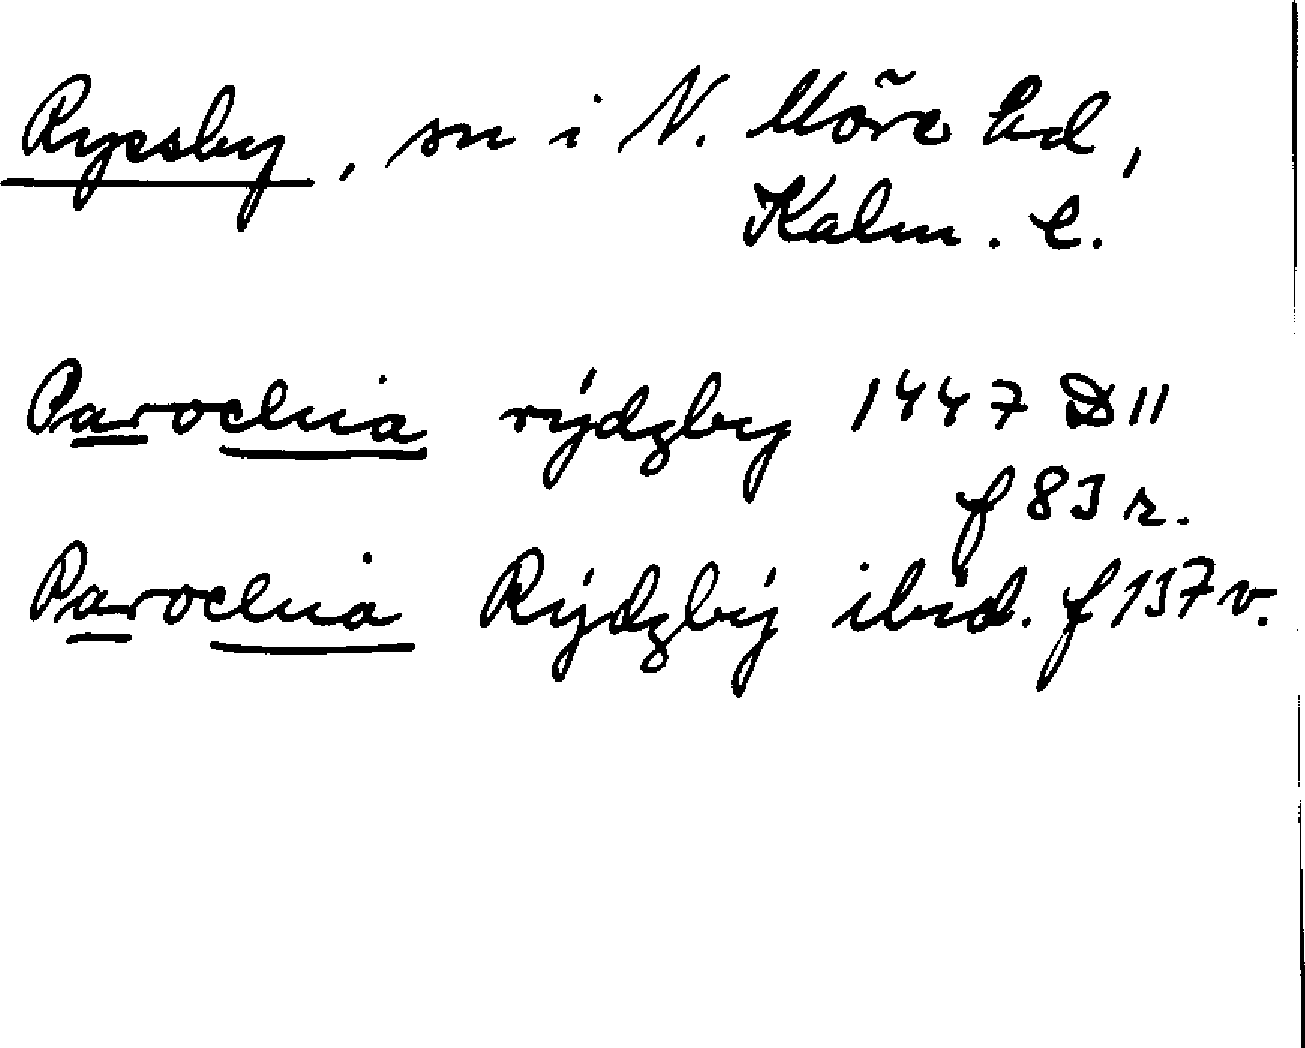 Ryssby, sn i N. Möre hd,
Kalm. l.
Parochia rýdzby 1447 D 11
f 83 r.
Parochia Rýdzbÿ ibid. f 137 v.